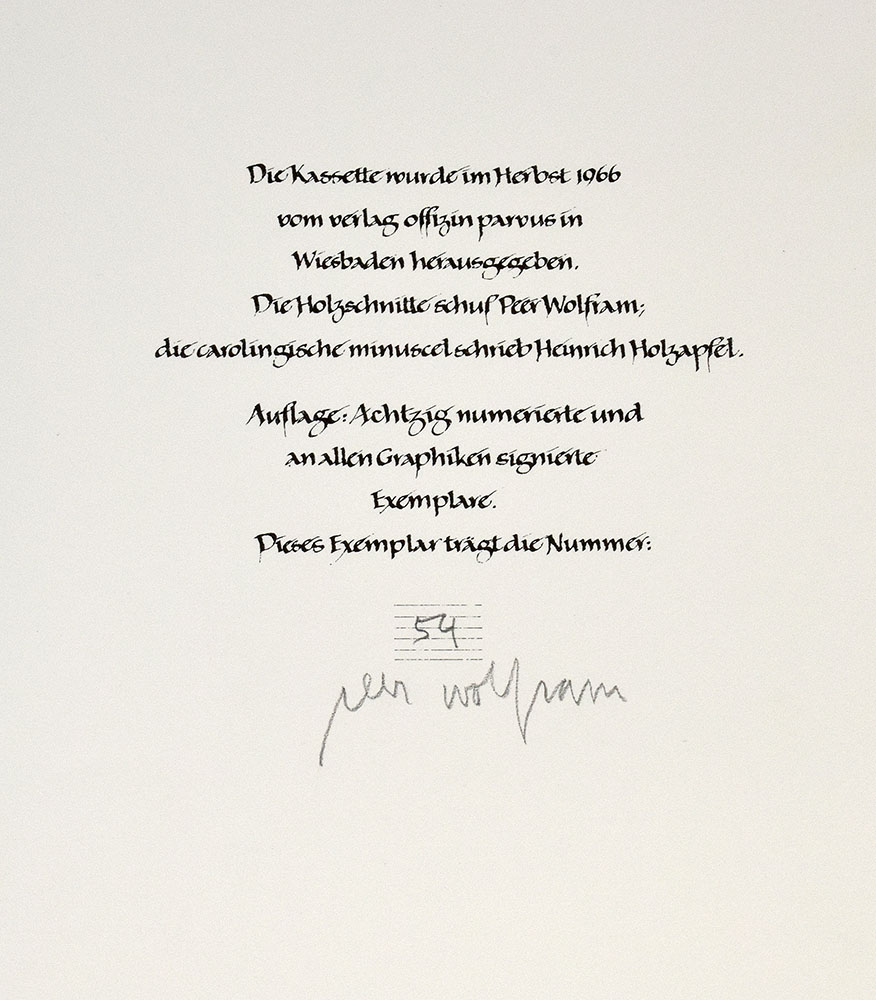 Die Kassette wurde im Herbst 1966
vom verlag offizin parvus in
Wiesbaden herausgegeben.
Die Holzschnitte schuf Peer Wolfram;
die carolingische minuscel schrieb Heinrich Holzapfel.
Auflage: Achtzig numerierte und
an allen Graphiken signierte
Exemplare.
Dieses Exemplar trägt die Nummer:
54
peer wolfram